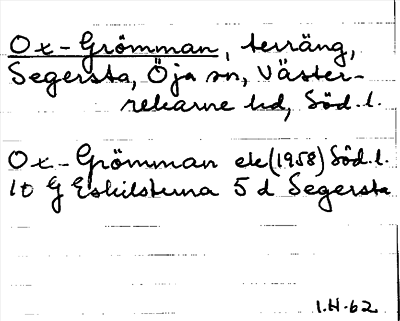 Ox-Grömman, terräng,
Segersta, Öja sn, Väster-
rekarne hd, Söd. l.
Ox-Grömman ek (1958) Söd. l.
10 G Eskilstuna 5 d Segersta
I.H-62